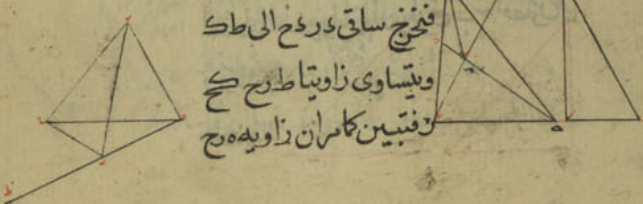 فنخرج ساقى ءر ءح الى ط ك
ويتساوى زاويتا ط رح ك ح
ر فتبين كما مر ان زاويه ه رح